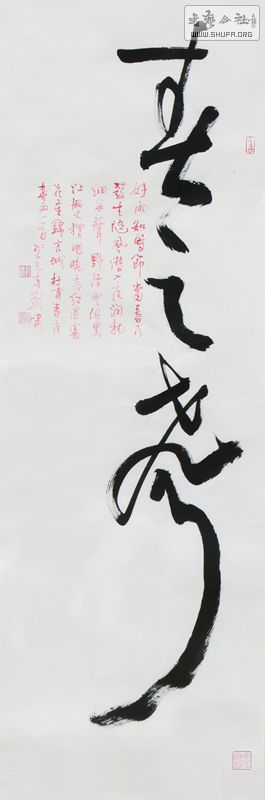 书艺公社
WWW.SHUFA.ORG
春之
好雨知時節當春乃
發生随風潜入夜润物
細無聲野徑雲俱黑
江船火獨明曉看红濕處
花重錦官城杜甫春夜
喜雨一首